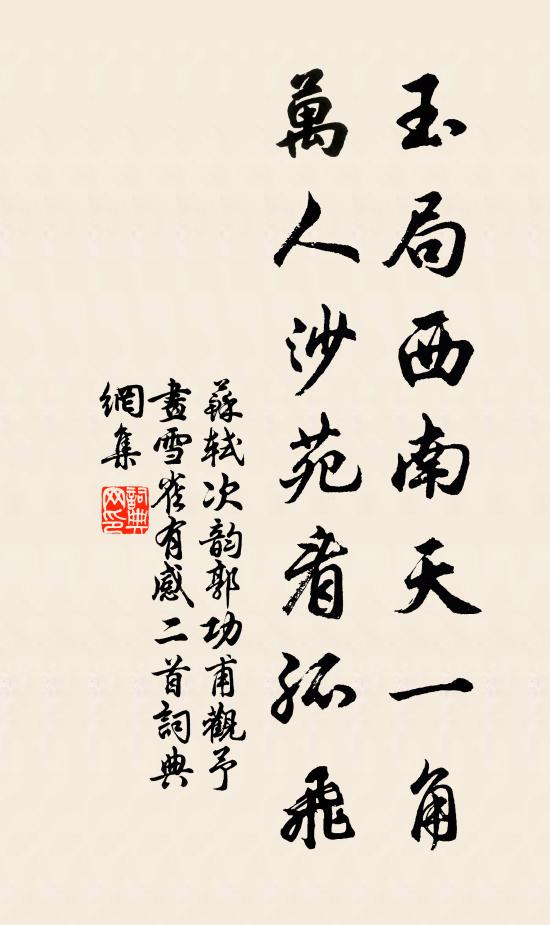 玉局西南天一角
萬人沙苑看孤飛
蘇軾次韵郭功甫觀予
畫雪雀有感二首詞典
網集
詞典
网印